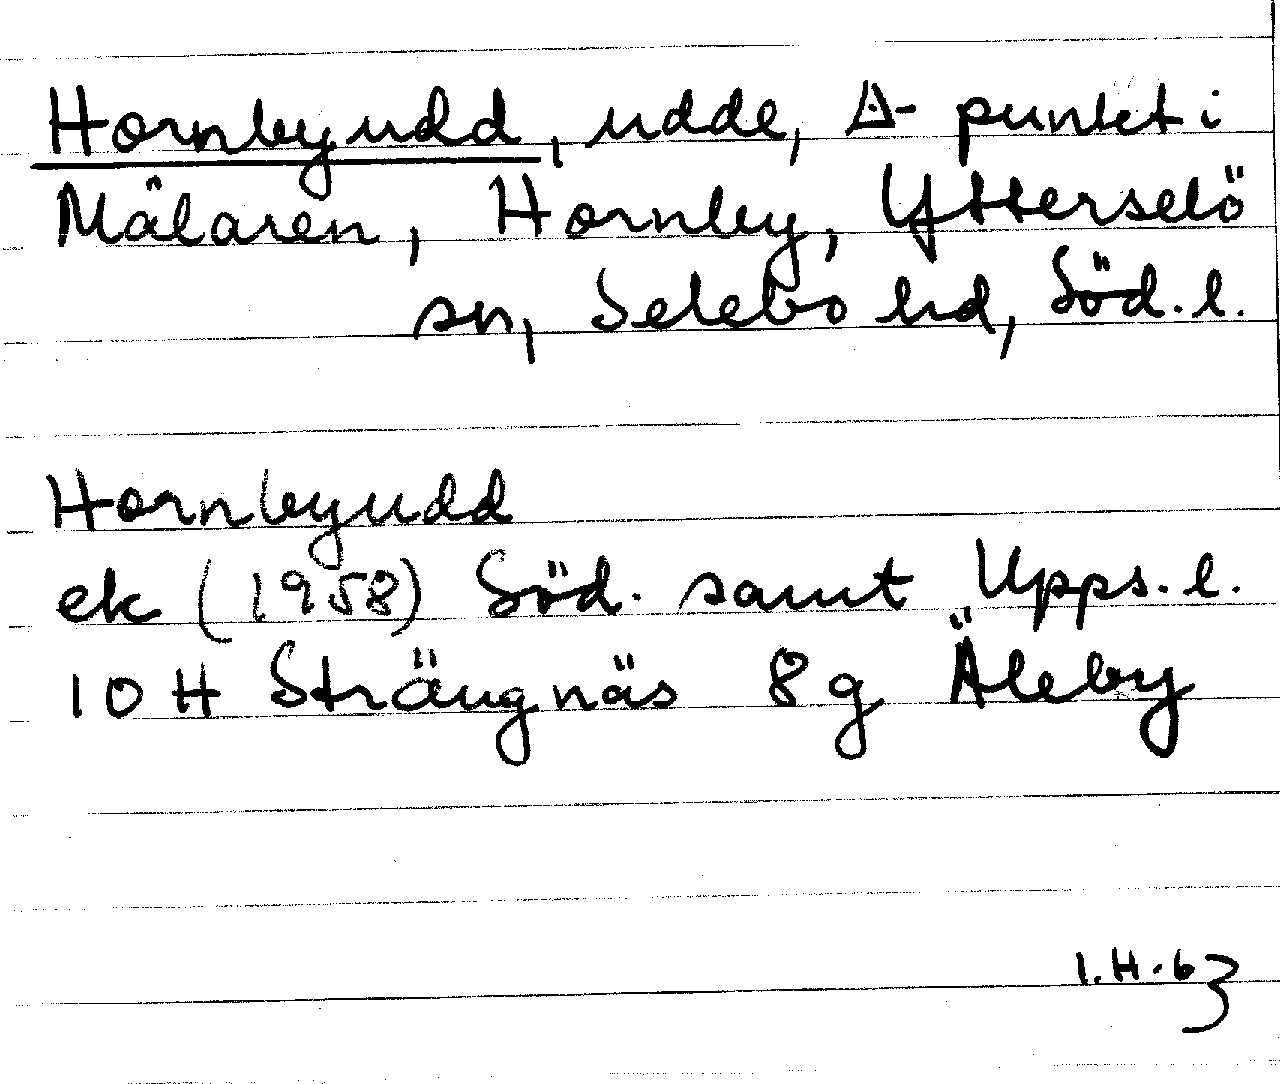 Hornbyudd, udde, ∆-punkt i
Mälaren, Hornby, Ytterselö
sn, Selebo hd, Söd. l.
Hornbyudd
ek (1958) Söd. samt Upps. l.
10 H Strängnäs 8 g Äleby
I.H.63